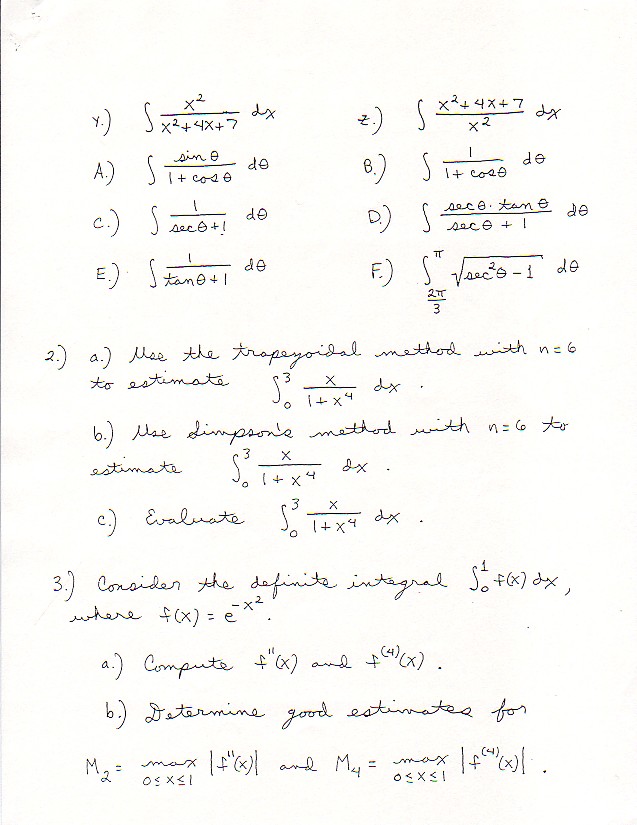 Y.) ∫ x²/(x²+4x+7) dx   Z.) ∫ (x²+4x+7)/x² dx
A.) ∫ sin θ/(1+cos θ) dθ   B.) ∫ 1/(1+cos θ) dθ
C.) ∫ 1/(sec θ+1) dθ   D.) ∫ (sec θ · tan θ)/(sec θ + 1) dθ
E.) ∫ 1/(tan θ+1) dθ   F.) ∫_{2π/3}^{π} √(sec²θ - 1) dθ
2.) a.) Use the trapezoidal method with n=6
to estimate ∫_0^3 x/(1+x⁴) dx .
b.) Use Simpson's method with n=6 to
estimate ∫_0^3 x/(1+x⁴) dx .
c.) Evaluate ∫_0^3 x/(1+x⁴) dx .
3.) Consider the definite integral ∫_0^1 f(x) dx ,
where f(x) = e^{-x²}.
a.) Compute f''(x) and f^{(4)}(x) .
b.) Determine good estimates for
M₂ = max_{0≤x≤1} |f''(x)| and M₄ = max_{0≤x≤1} |f^{(4)}(x)| .